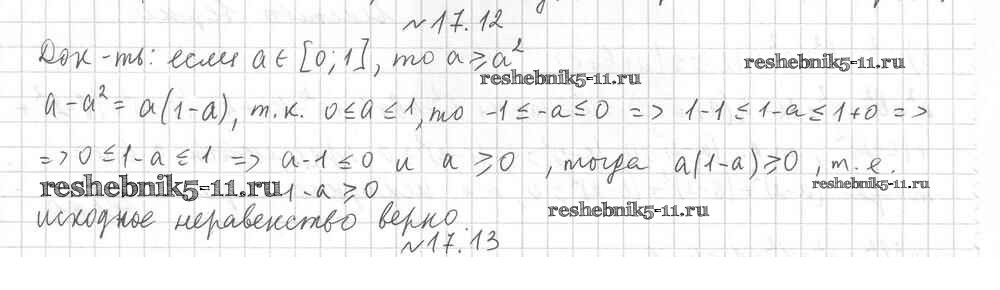 №17.12
Док-ть: если a ∈ [0;1], то a ≥ a²
reshebnik5-11.ru reshebnik5-11.ru
a - a² = a(1-a), т.к. 0 ≤ a ≤ 1, то -1 ≤ -a ≤ 0 => 1-1 ≤ 1-a ≤ 1+0 =>
=> 0 ≤ 1-a ≤ 1 => a-1 ≤ 0 и a ≥ 0, тогда a(1-a) ≥ 0, т.е.
reshebnik5-11.ru 1-a ≥ 0 reshebnik5-11.ru
исходное неравенство верно. reshebnik5-11.ru
№17.13